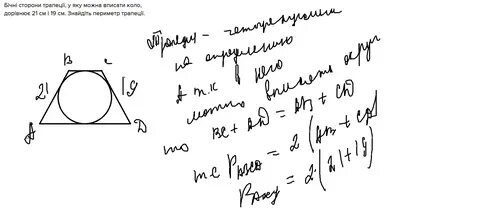 Бічні сторони трапеції, у яку можна вписати коло,
дорівнює 21 см і 19 см. Знайдіть периметр трапеції.
B C
21 19
A D
Трапеция - четырехугольник
по определению
А т.к в него
можно вписать окруж
то BC + AD = AB + CD
т.е PABCD = 2 (AB + CD)
= 2 · (21+19)